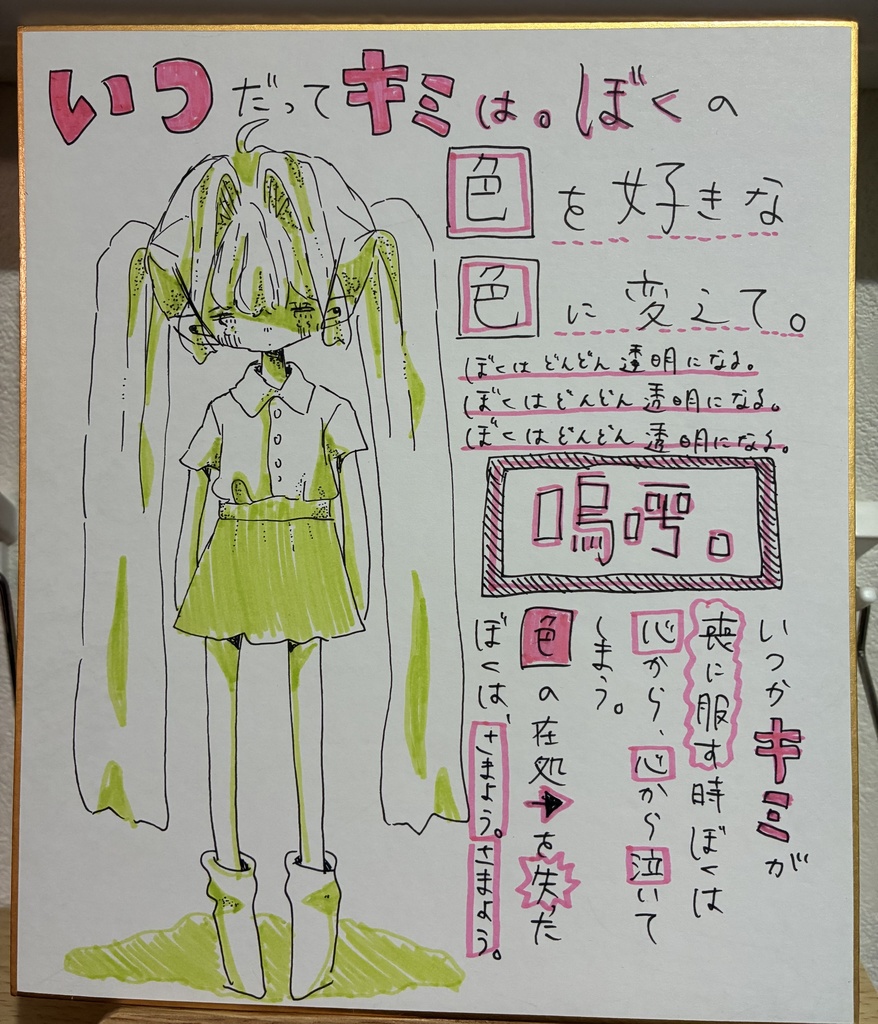 いつだってキミは。ぼくの
色を好きな
色に変えて。
ぼくはどんどん透明になる。
ぼくはどんどん透明になる。
ぼくはどんどん透明になる。
嗚呼。
いつかキミが
喪に服す時ぼくは
心から、心から泣いて
しまう。
色の在処を失った
ぼくは、さまよう。さまよう。